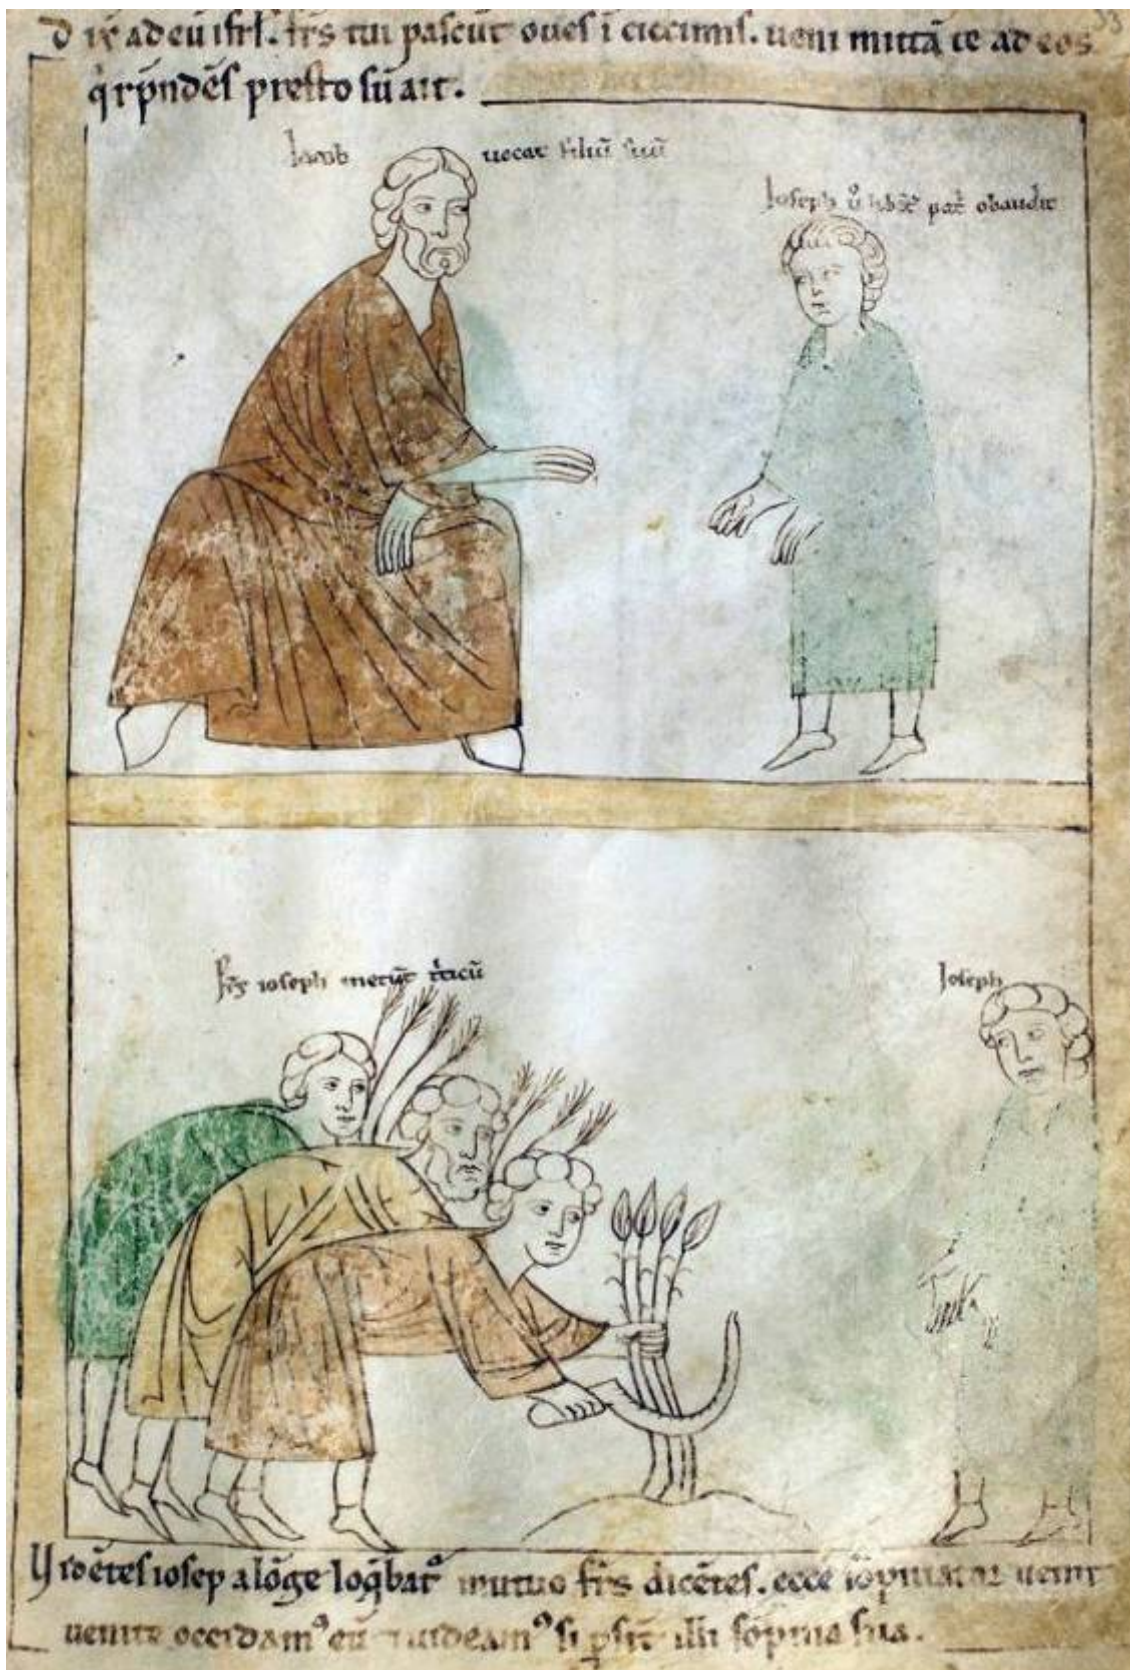 Dix̄ ad eū isrl̄. frs̄ tui pascūt oues ī siccimis. ueni mittā te ad eos
q̇ rp̄ndēs presto sū ait.
Iacob uocat filiū suū
Ioseph pat̄ obaudit
frs̄ ioseph metūt ṫticū
Ioseph
Uidētes iosep a lōge loq̄bat᷒ mutuo frs̄ dicētes. ecce sōpniator uenit
uenite occidam᷒ eū uideam᷒ si ꝓsīt illi sōpnia sua.